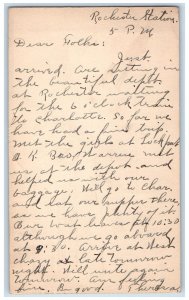 Rochester Station.
5 P.M.
Dear Folks:
Just
arrived. Are sitting in
the beautiful depot
at Rochester waiting
for the 6 o'clock train
to Charlotte. So far we
have had a fine trip.
Met the girls at Lockport
O.K. Bas. Warren met
us at the depot and
helped us with our
baggage. Will go to Char.
and eat our supper there,
as we have plenty of it.
Our boat leaves at 10:30
although we go aboard
at 9:30. Arrive at West
chazy at late tomorrow
night. Will write again
tomorrow. Am feeling
fine. Be good.